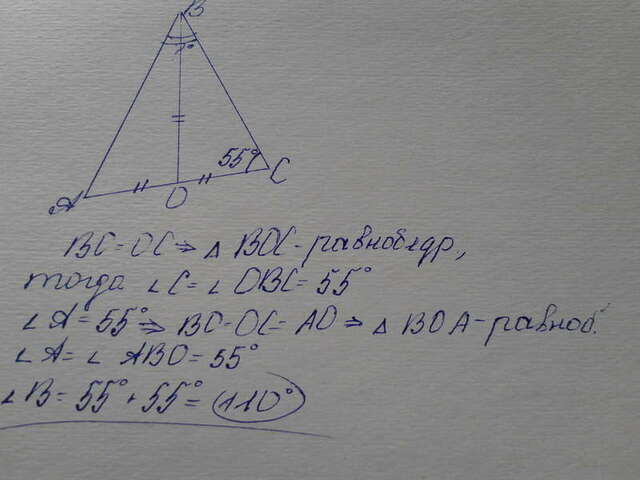 B
?°
55°
A
O
C
BC=OC⇒ △ BOC-равнобедр,
тогда ∠C=∠OBC=55°
∠A=55°⇒ BO=OC=AO⇒ △ BOA-равноб.
∠A=∠ABO=55°
∠B=55°+55°=110°